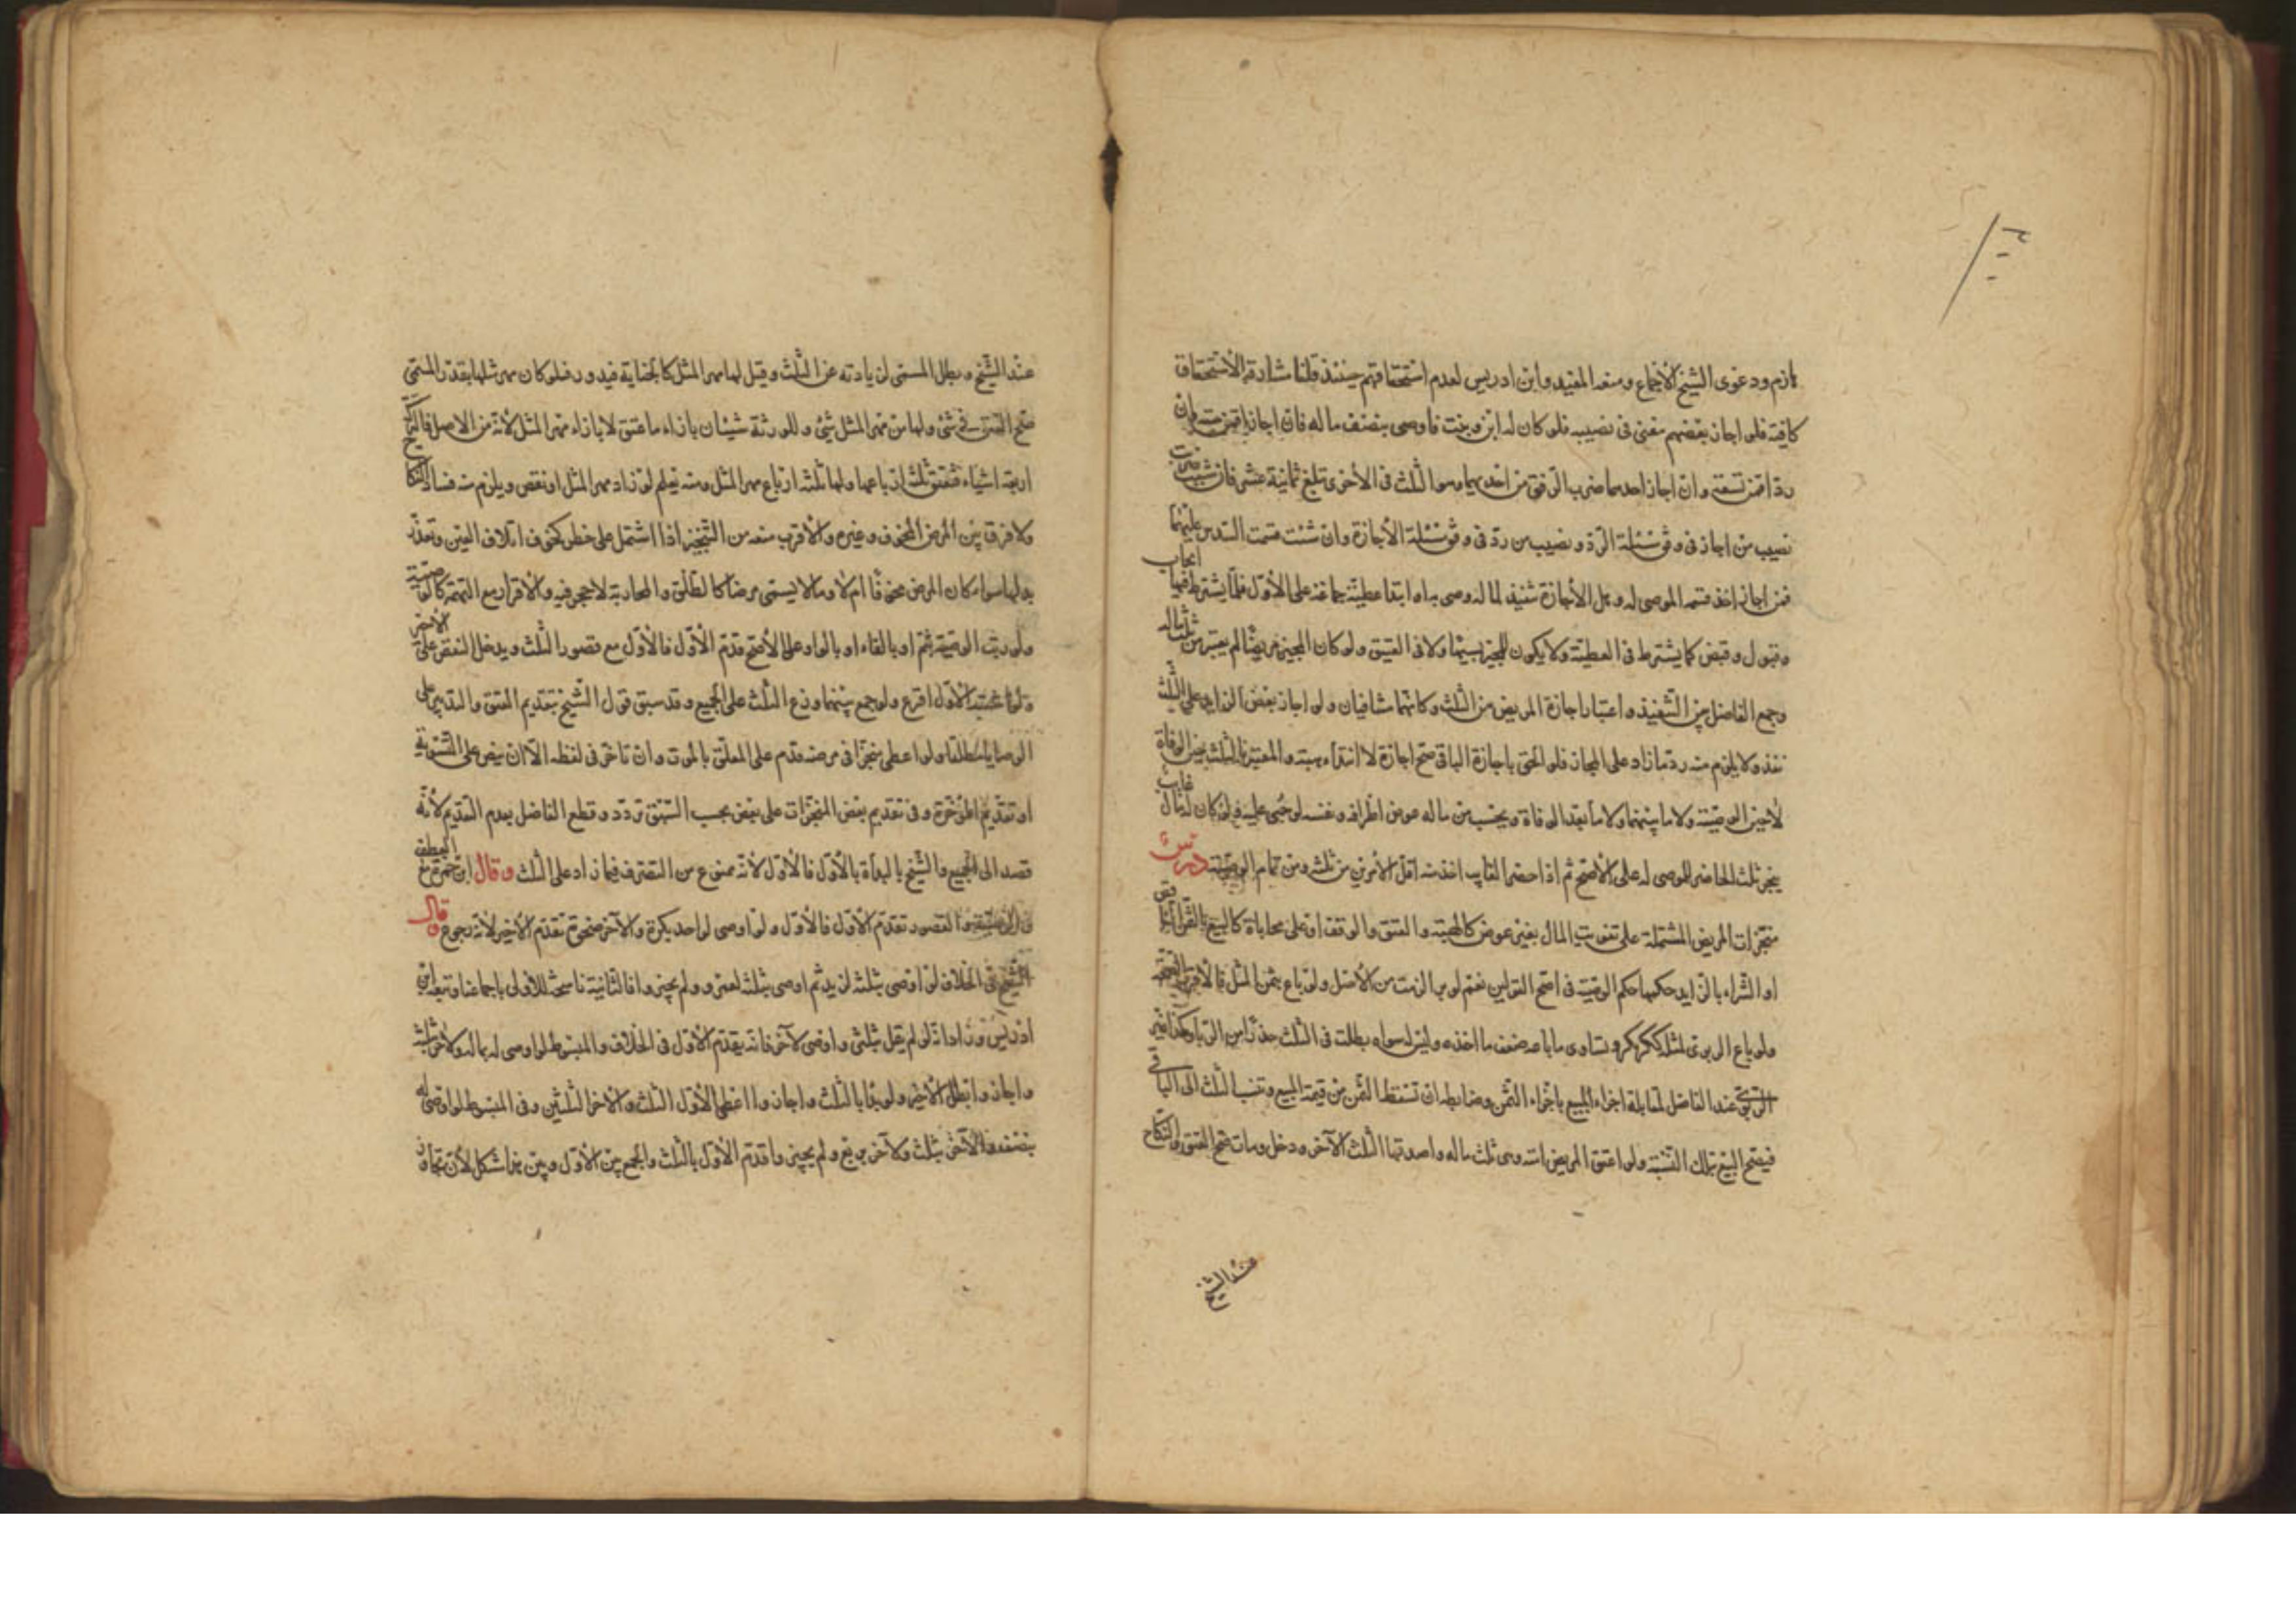 لازم ودعوى الشيخ الاجماع ومنعه المفيد وابن ادريس لعدم استحقاقهم حينئذ قلنا مشارفة الاستحقاق
كافية فلو اجاز بعضهم مضى فى نصيبه فلو كان له ابن وبنت فاوصى بنصف ماله فان اجازا فمن ستة وان
ردا فمن تسعة وان اجاز احدهما ضرب الوفق من احديهما وهو الثلث فى الاخرى تبلغ ثمانية عشر فان شئت ضربت
نصيب من اجاز فى وفق مسئلة الرد ونصيب من رد فى وفق مسئلة الاجازة وان شئت قسمت السدس عليهما
فمن اجاز اخذ قسمه الموصى له وهل الاجازة تنفيذ لما له وصى به او ابتدا عطية جماعة على الاول فلا يشترط فيها ايجاب
وقبول وقبض كما يشترط فى العطية ولا يكون للمجيز بسببها ولاء فى العتيق ولو كان المجيز مريضا لم يعتبر من ثلث ماله
وجمع الفاضل بين التنفيذ واعتبار اجازة المريض من الثلث وكانهما متنافيان ولو اجاز بعض الزايد على الثلث
نفذ ولا يلزم منه رد ما زاد على المجاز فلو الحق باجازة الباقى صح اجازة لا ابتداء هبة والمعتبر بالثلث حين الوفاة
لا حين الوصية ولا ما بينهما ولا ما بعد الوفاة ويحتسب من ماله عوض اطرافه ونفسه لو جنى عليه فلو كان له مال غايب
ينجز ثلث الحاضر للموصى له على الاصح ثم اذا حضر الغايب اخذ منه اقل الامرين من ثلثه ومن تمام الوصية درس
منجزات المريض المشتملة على تفويت المال بغير عوض كالهبة والعتق والوقف او على محاباة كالبيع بالناقص
او الشراء بالزايد حكمها حكم الوصية فى اصح القولين نعم لو برئ لزمت من الاصل ولو باع بثمن المثل فالاقرب الصحة
ولو باع الربوى بمثله ككر بكر وتساوى ما باعه ضعف ما اخذه وليس له سواه بطلت فى الثلث حذرا من الربا وكذا غير
الربوى عند الفاضل لمقابلة اجزاء المبيع باجزاء الثمن وضابطه ان تسقط الثمن من قيمة المبيع وتنسب الثلث الى الباقى
فيصح البيع بتلك النسبة ولو اعتق المريض امته وهى ثلث ماله واصدقها الثلث الآخر ودخل ومات صح العتق والنكاح
عند الشيخ
عند الشيخ وبطل المسمى لزيادته عن الثلث وقيل لها مهر المثل كالجناية فيدور فلو كان مهر مثلها بقدر المسمى
صح العتق فى شئ ولها من مهر المثل شئ وللورثة شيئان بازاء ما عتق لا بازاء مهر المثل لانه من الاصل فالتركة
اربعة اشياء فتعتق ثلثة ارباعها ولها ثلثة ارباع مهر المثل ومنه يعلم لو زاد مهر المثل او نقص ويلزم منه فساد النكاح
ولا فرق بين المرض المخوف وغيره والاقرب منعه من التنجيز اذا اشتمل على خطر كخوف اتلاف العين وتعذر
بدلها سواء كان المرض مخوفا ام لا وما لا يسمى مرضا كالطلق والمحاربة لا حجر فيه والاقرار مع التهمة كالوصية
ولو رتب الوصية بثم او بالفاء او بالواو على الاصح قدم الاول فالاول مع قصور الثلث ويدخل النقص على الاخير
ولو اشتبه الاول اقرع ولو جمع بينهما وزع الثلث على الجميع وقد سبق قول الشيخ بتقديم العتق والتدبير على
الوصايا مطلقا ولو اعطى منجزا فى مرضه قدم على المعلق بالموت وان تاخر فى لفظه الا ان ينص على التسوية
او تقديم المؤخرة وفى تقديم بعض المنجزات على بعض بحسب السبق تردد وقطع الفاضل بعدم التقديم لانه
قصد الى الجميع والشيخ بالبداة بالاول فالاول لانه ممنوع من التصرف فيما زاد على الثلث وقال ابن حمزة مع العطف
القصور تقدم الاول فالاول ولو اوصى لواحد بكرة والآخر ضحوة تقدم الاخير لانه رجوع قال
الشيخ فى الخلاف لو اوصى بثلثه لزيد ثم اوصى بثلثه لعمرو ولم يجيزوا فالثانية ناسخة للاولى باجماعنا وتبعه ابن
ادريس وزاد انه لو لم يقل بثلثى واوصى لآخر فانه يقدم الاول فى الخلاف والمبسوط لو اوصى له بماله ولآخر بثلثه
واجازوا بطل الاخير ولو بدا بالثلث واجازوا اعطى الاول الثلث والاخر الثلثين وفى المبسوط لو اوصى له
بنصفه والآخر بثلث ولآخر بربع ولم يجيزوا قدم الاول بالثلث والجمع بين الاول وبين هذا مشكل لان تجاوز